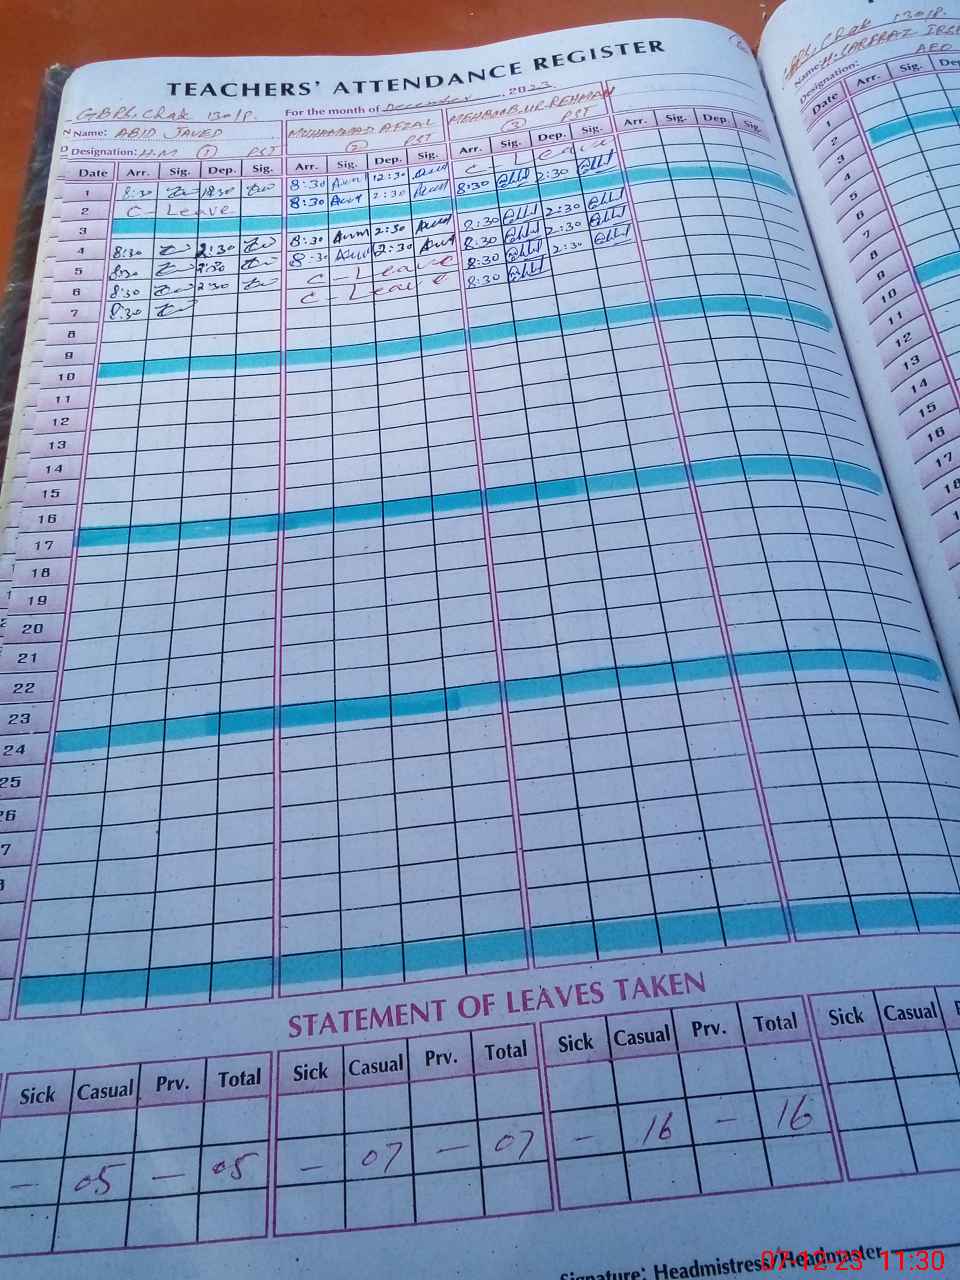 TEACHERS' ATTENDANCE REGISTER
For the month of December 2023
GBPS, Chak 130/P.
Name: ABID JAVED MUHAMMAD AFZAL MEHBOOB UR REHMAN
Designation: H.M ① PST ② PST ③ PST
Date Arr. Sig. Dep. Sig. Arr. Sig. Dep. Sig. Arr. Sig. Dep. Sig. Arr. Sig. Dep. Sig.
1 8:30 12:30 8:30 12:30 C - Leave
2 C - Leave 8:30 2:30 8:30 2:30
3
4 8:30 2:30 8:30 2:30 8:30 2:30
5 8:30 2:30 8:30 2:30 8:30 2:30
6 8:30 2:30 C - Leave 8:30 2:30
7 8:30 C - Leave 8:30
8
9
10
11
12
13
14
15
16
17
18
19
20
21
22
23
24
25
26
7
STATEMENT OF LEAVES TAKEN
Sick Casual Prv. Total Sick Casual Prv. Total Sick Casual Prv. Total Sick Casual
- 05 - 05 - 07 - 07 - 16 - 16
Signature: Headmistress/Headmaster
07-12-23 11:30
Chak 130/P.
Name: SARFRAZ
Designation: AEO
Date Arr. Sig. Dep.
1
2
3
4
5
6
7
8
9
10
11
12
13
14
15
16
17
18